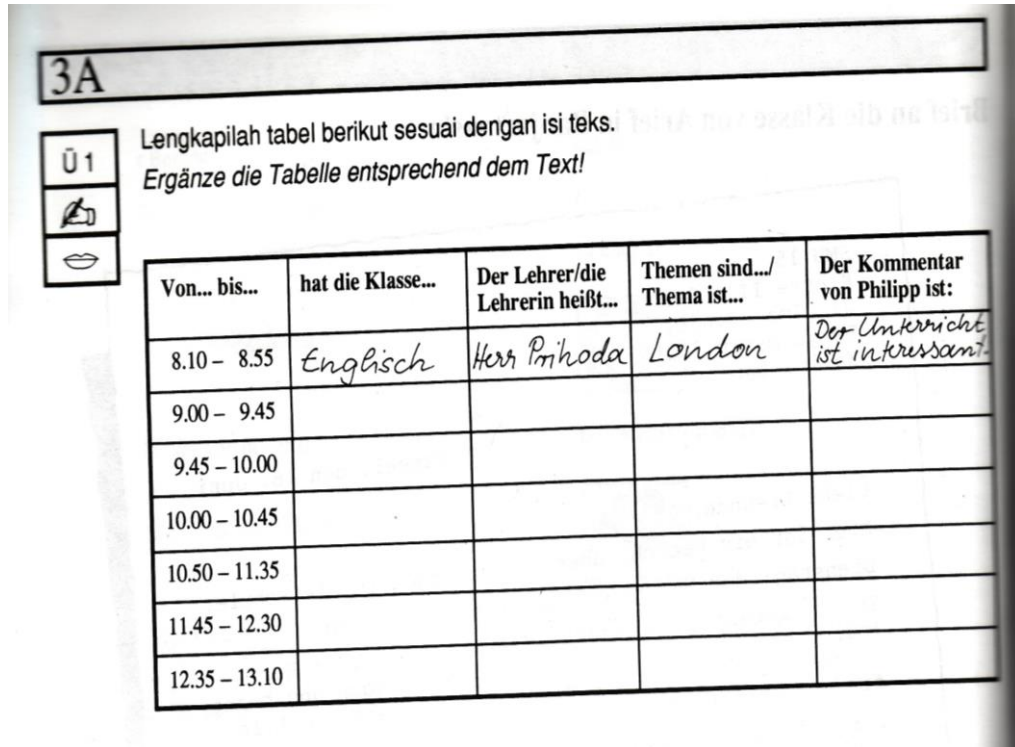 3A
Brief an die Klasse von Arief in
Ü 1
Lengkapilah tabel berikut sesuai dengan isi teks.
Ergänze die Tabelle entsprechend dem Text!
Von... bis... hat die Klasse... Der Lehrer/die Lehrerin heißt... Themen sind.../ Thema ist... Der Kommentar von Philipp ist:
8.10 – 8.55 Englisch Herr Prihoda London Der Unterricht ist interessant.
9.00 – 9.45
9.45 – 10.00
10.00 – 10.45
10.50 – 11.35
11.45 – 12.30
12.35 – 13.10